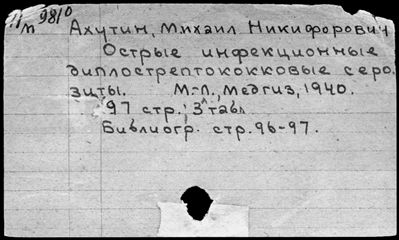 9810
Ахутин, Михаил Никифорович
Острые инфекционные
диплострептококковые серо-
зиты. М.-Л., Медгиз, 1940.
97 стр.; 3 табл
Библиогр. стр. 96-97.